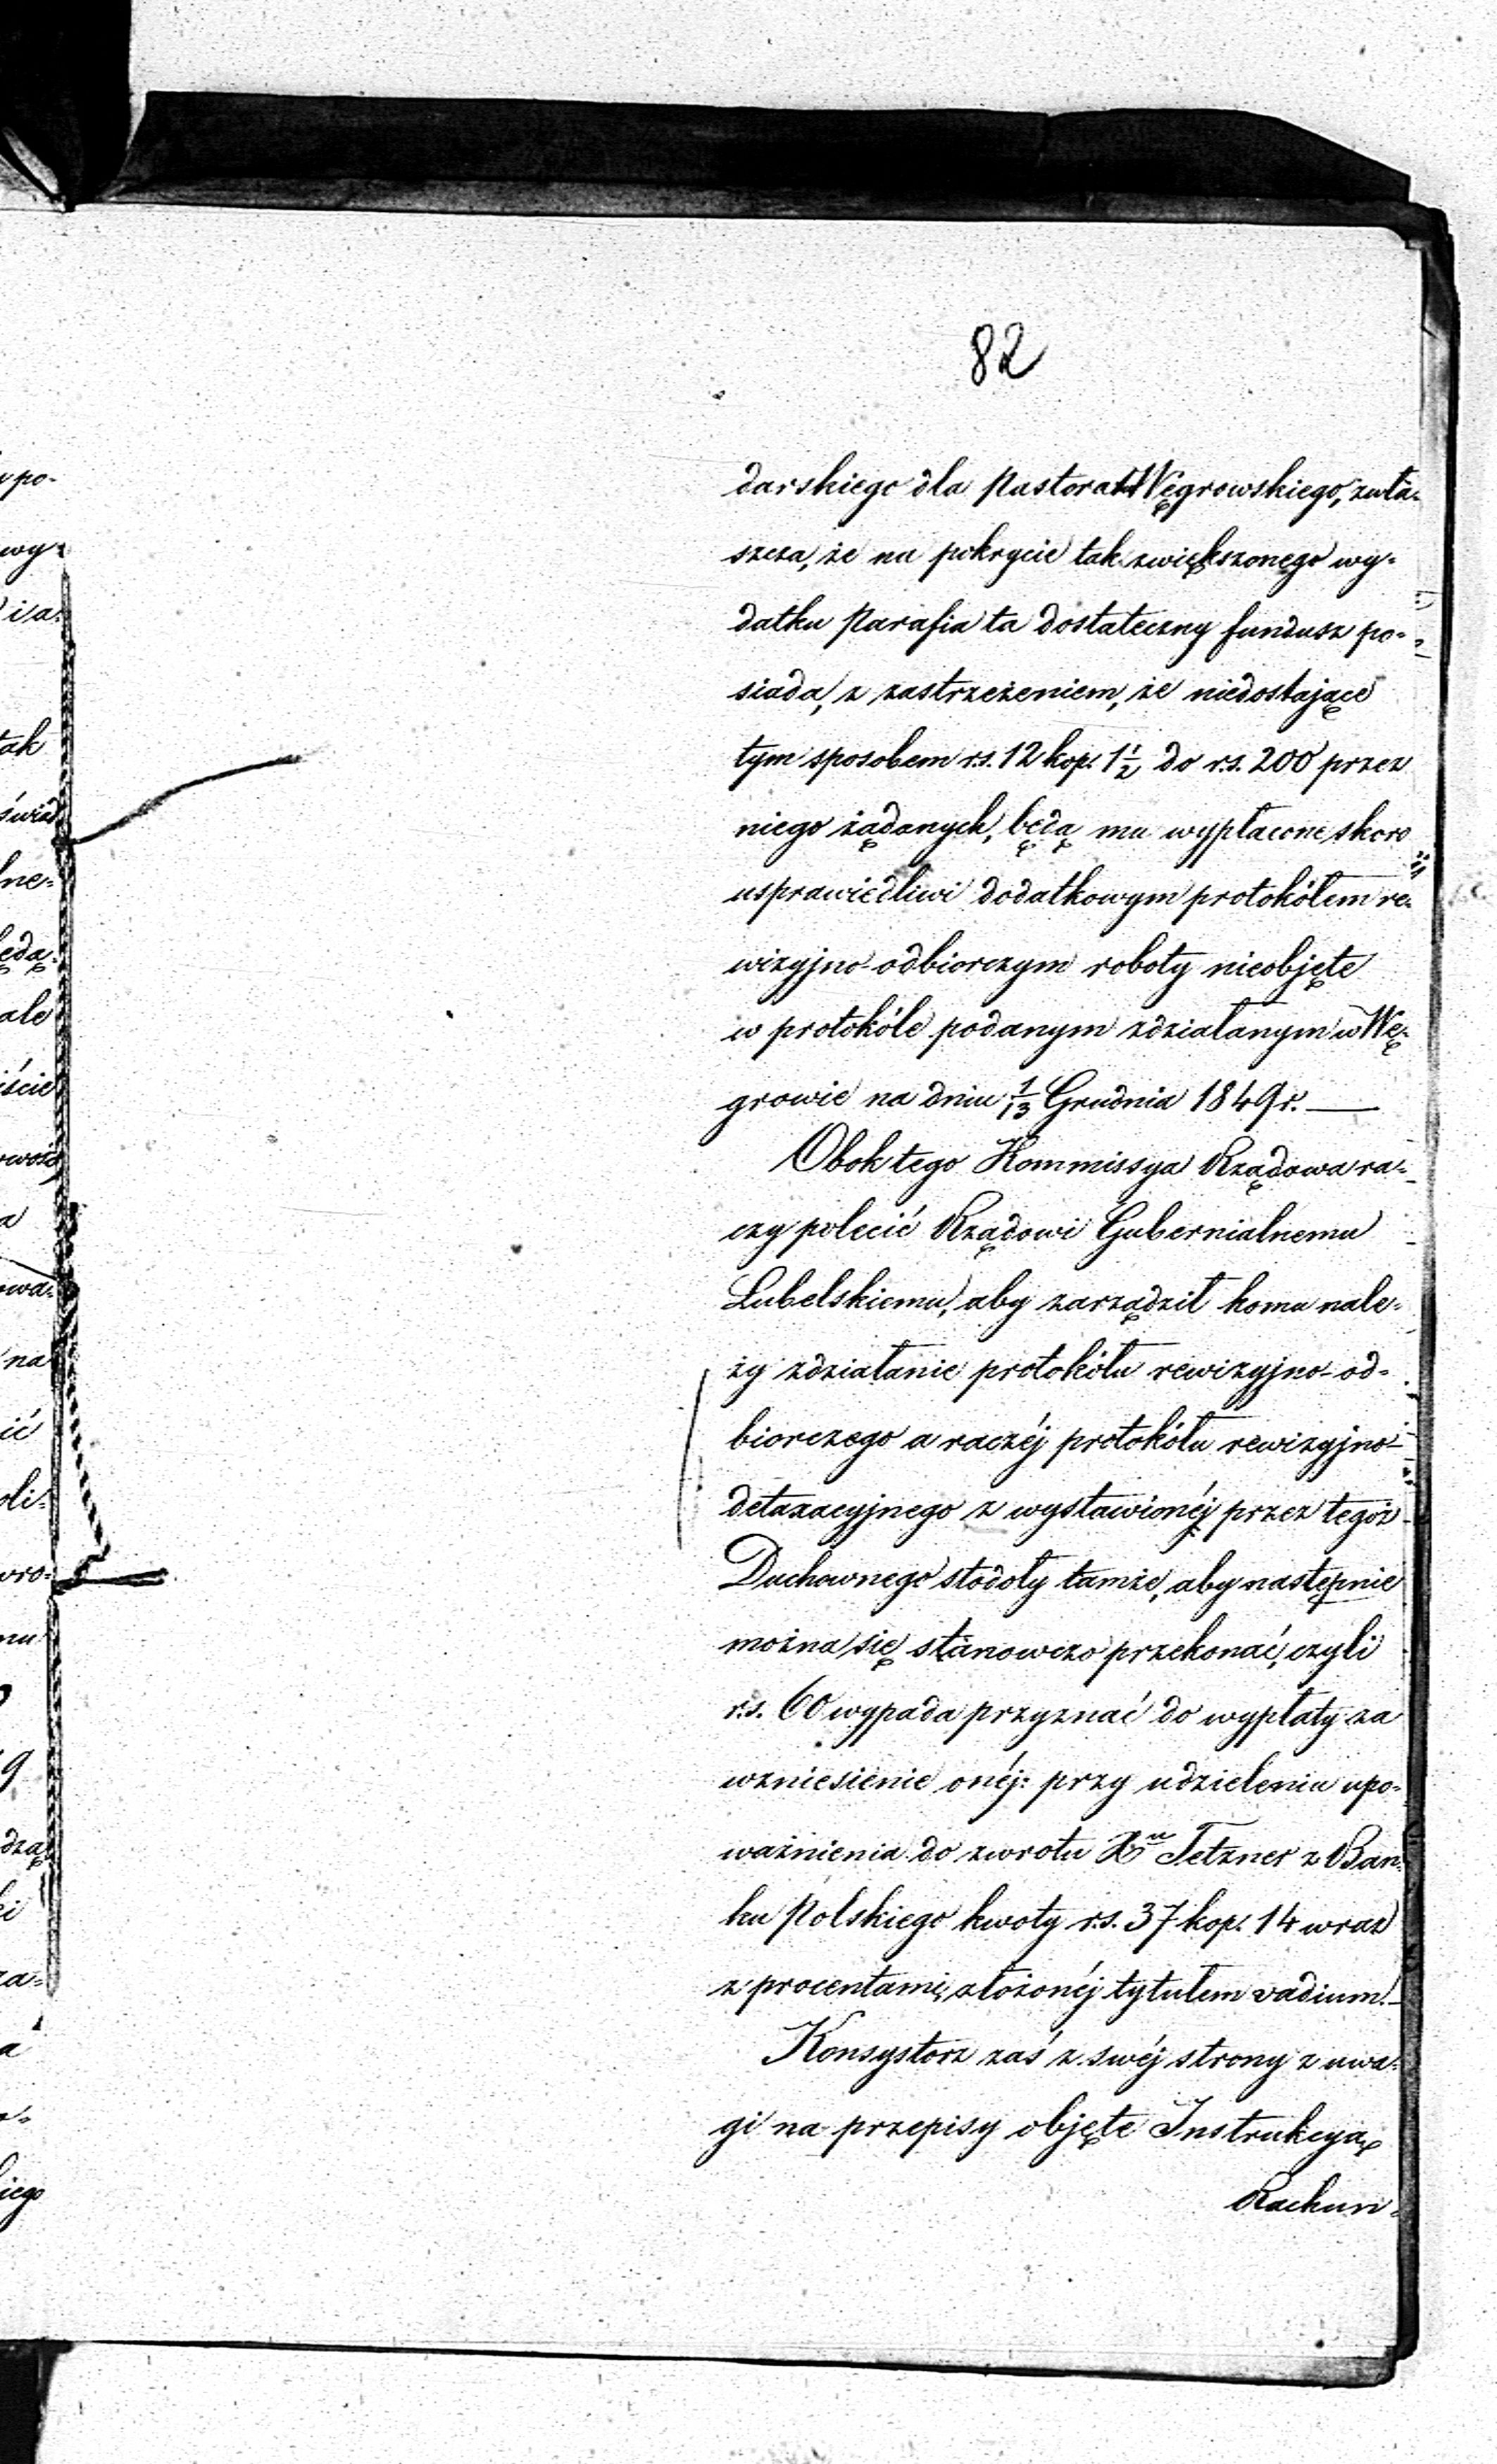 82
darskiego dla Pastora Węgrowskiego, zwła-
szcza, że na pokrycie tak zwiększonego wy-
datku Parafia ta dostateczny fundusz po-
siada, z zastrzeżeniem, że niedostające
tym sposobem r.s. 12 kop. 1½ do r.s. 200 przez
niego żądanych, będą mu wypłacone skoro
usprawiedliwi dodatkowym protokółem re-
wizyjno-odbiorczym roboty nieobjęte
w protokóle podanym zdziałanym w Wę-
growie na dniu 1/13 Grudnia 1849 r. —
Obok tego Kommissya Rządowa ra-
czy polecić Rządowi Gubernialnemu
Lubelskiemu, aby zarządził komu nale-
ży zdziałanie protokółu rewizyjno-od-
biorczego a raczéj protokółu rewizyjno-
detaxacyjnego z wystawionéj przez tegoż
Duchownego stodoły tamże, aby następnie
można się stanowczo przekonać, czyli
r.s. 60 wypada przyznać do wypłaty za
wzniesienie onéj: przy udzieleniu upo-
ważnienia do zwrotu Tetzner z Ban-
ku Polskiego kwoty r.s. 37 kop. 14 wraz
z procentami, złożonéj tytułem vadium. —
Konsystorz zaś z swéj strony z uwa-
gi na przepisy objęte Instrukcyą
Rachun-